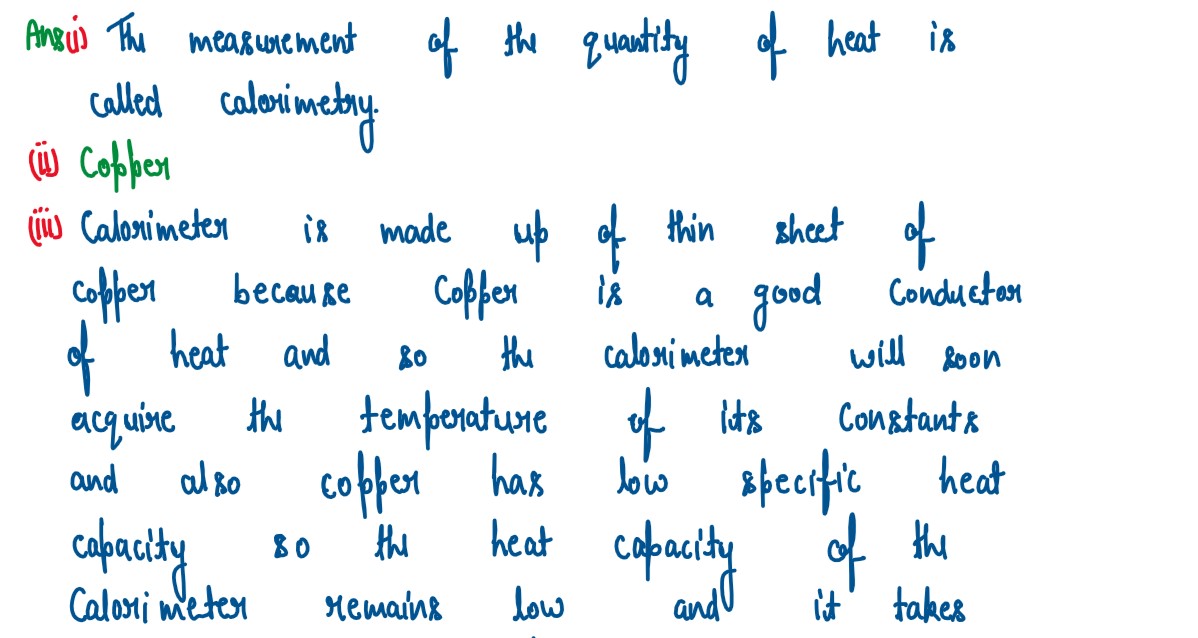 Ans(i) The measurement of the quantity of heat is
called calorimetry.
(ii) Copper
(iii) Calorimeter is made up of thin sheet of
copper because Copper is a good Conductor
of heat and so the calorimeter will soon
acquire the temperature of its Constants
and also copper has low specific heat
capacity so the heat capacity of the
Calorimeter remains low and it takes